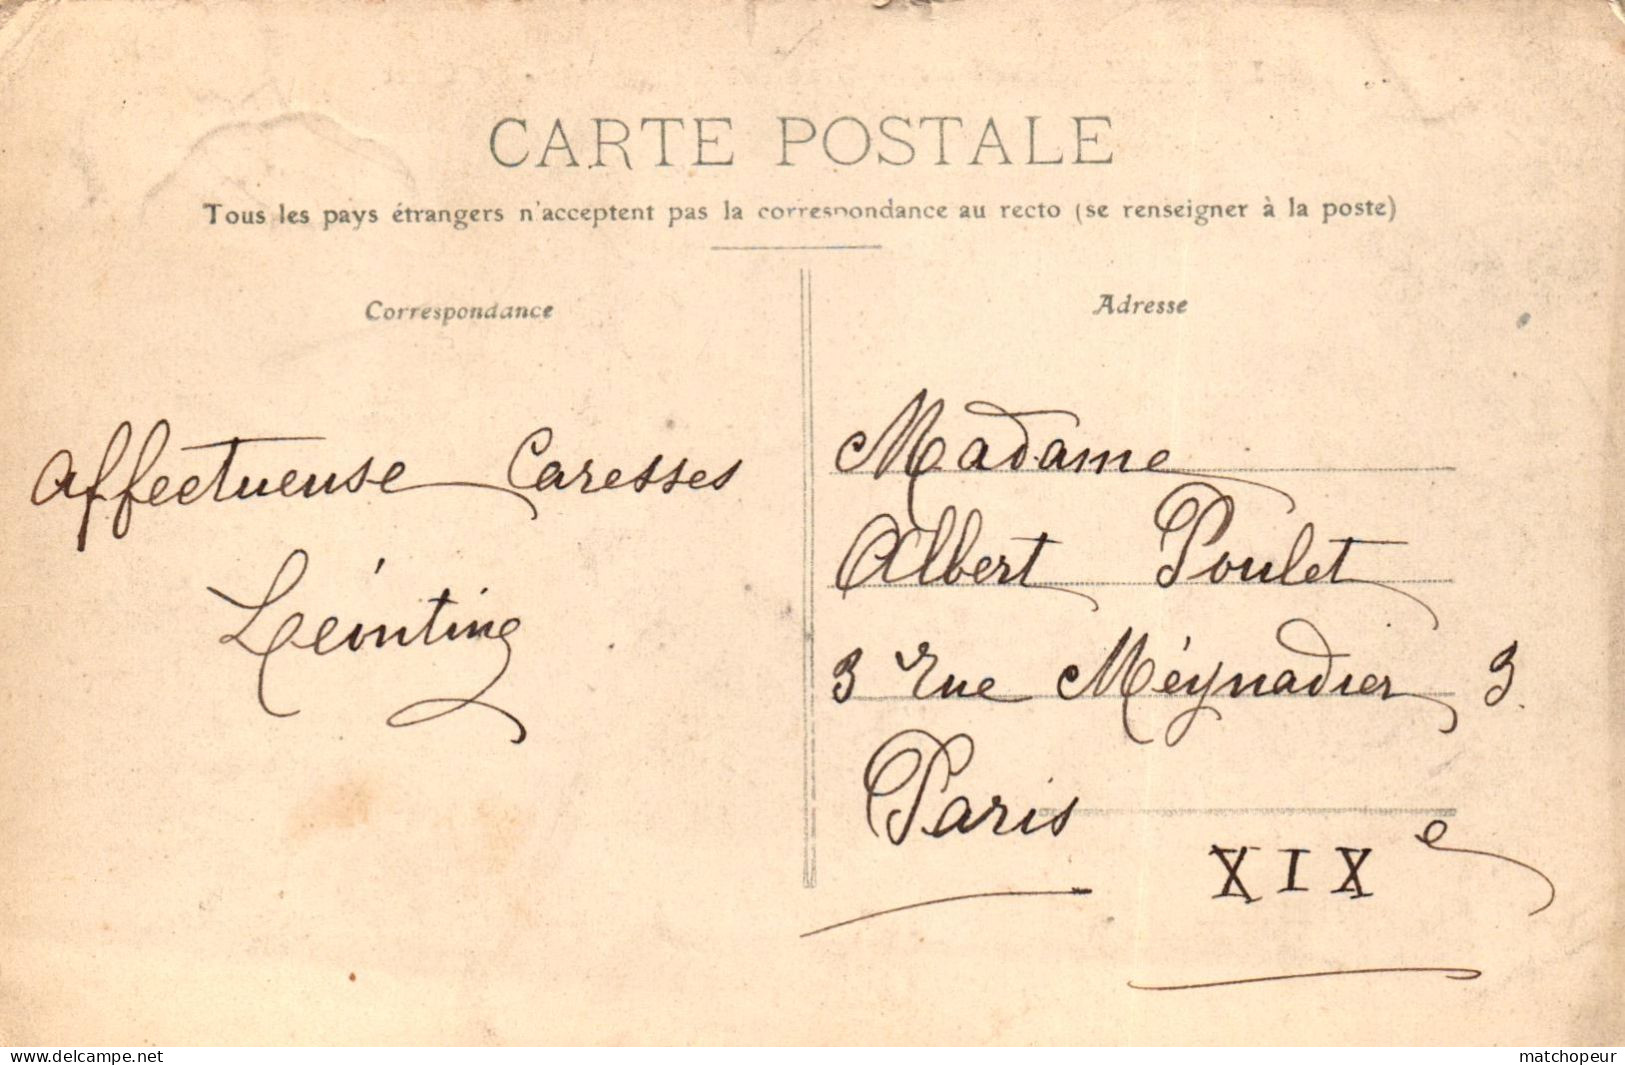 CARTE POSTALE
Tous les pays étrangers n'acceptent pas la correspondance au recto (se renseigner à la poste)
Correspondance
Affectueuse Caresses
Léontine
Adresse
Madame
Albert Poulet
3 rue Méynadier 3.
Paris
XIXe
www.delcampe.net
matchopeur